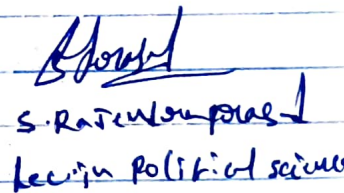 S. Rajendraprasad
Lec. in Political science